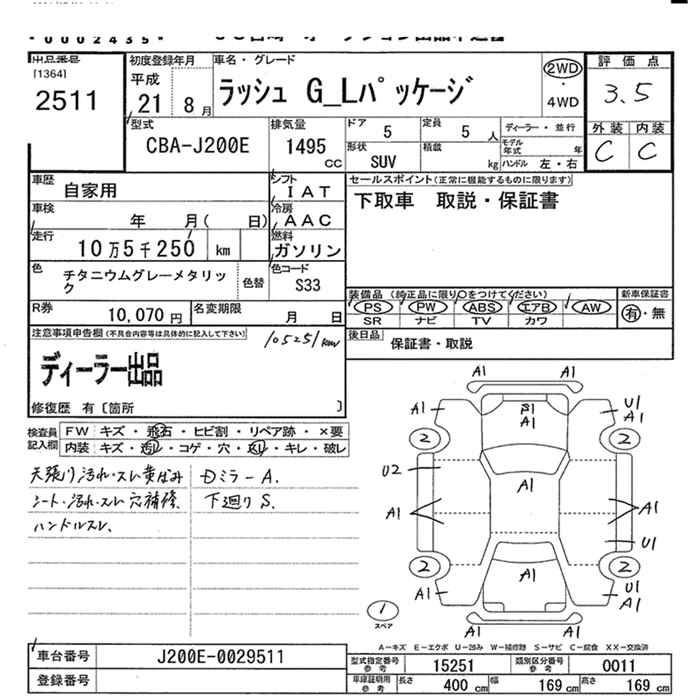 *0002435*
出品番号
[1364]
2511
初度登録年月
平成
21 8月
車名・グレード
ラッシュ G_Lパッケージ
2WD
・
4WD
評 価 点
3.5
外装 内装
C C
型式
CBA-J200E
排気量
1495
cc
ドア 5
定員 5 人
形状 SUV
積載 kg
ディーラー・並行
モデル年式 年
ハンドル 左・右
車歴 自家用
シフト IAT
車検 年 月( 日)
冷房 AAC
走行 10万5千250 km
燃料 ガソリン
色 チタニウムグレーメタリック
色替
色コード S33
R券 10,070円
名変期限 月 日
セールスポイント(正常に機能するものに限ります)
下取車 取説・保証書
装備品 (純正品に限り○をつけてください)
PS PW ABS エアB AW
SR ナビ TV カワ
新車保証書
有・無
後日品 保証書・取説
注意事項申告欄(不具合内容等は具体的に記入して下さい)
105251km
ディーラー出品
修復歴 有〔箇所 〕
検査員記入欄
FW キズ・飛石・ヒビ割・リペア跡・×要
内装 キズ・汚レ・コゲ・穴・スレ・キレ・破レ
天張り汚れ・スレ黄ばみ
シート・汚れ・スレ穴補修、
ハンドルスレ、
DミラーA.
下廻りS.
A1 A1
A1 A1 U1
A1 A1
2 2
U2 A1
A1 A1
U1
2 A1 2
A1 U1
A1
A1
1
スペア
A-キズ E-エクボ U-凹み W-補修跡 S-サビ C-腐食 XX-交換済
車台番号 J200E-0029511
登録番号
型式指定番号 参考 15251
類別区分番号 参考 0011
車庫証明用 参考
長さ 400 cm
幅 169 cm
高さ 169 cm